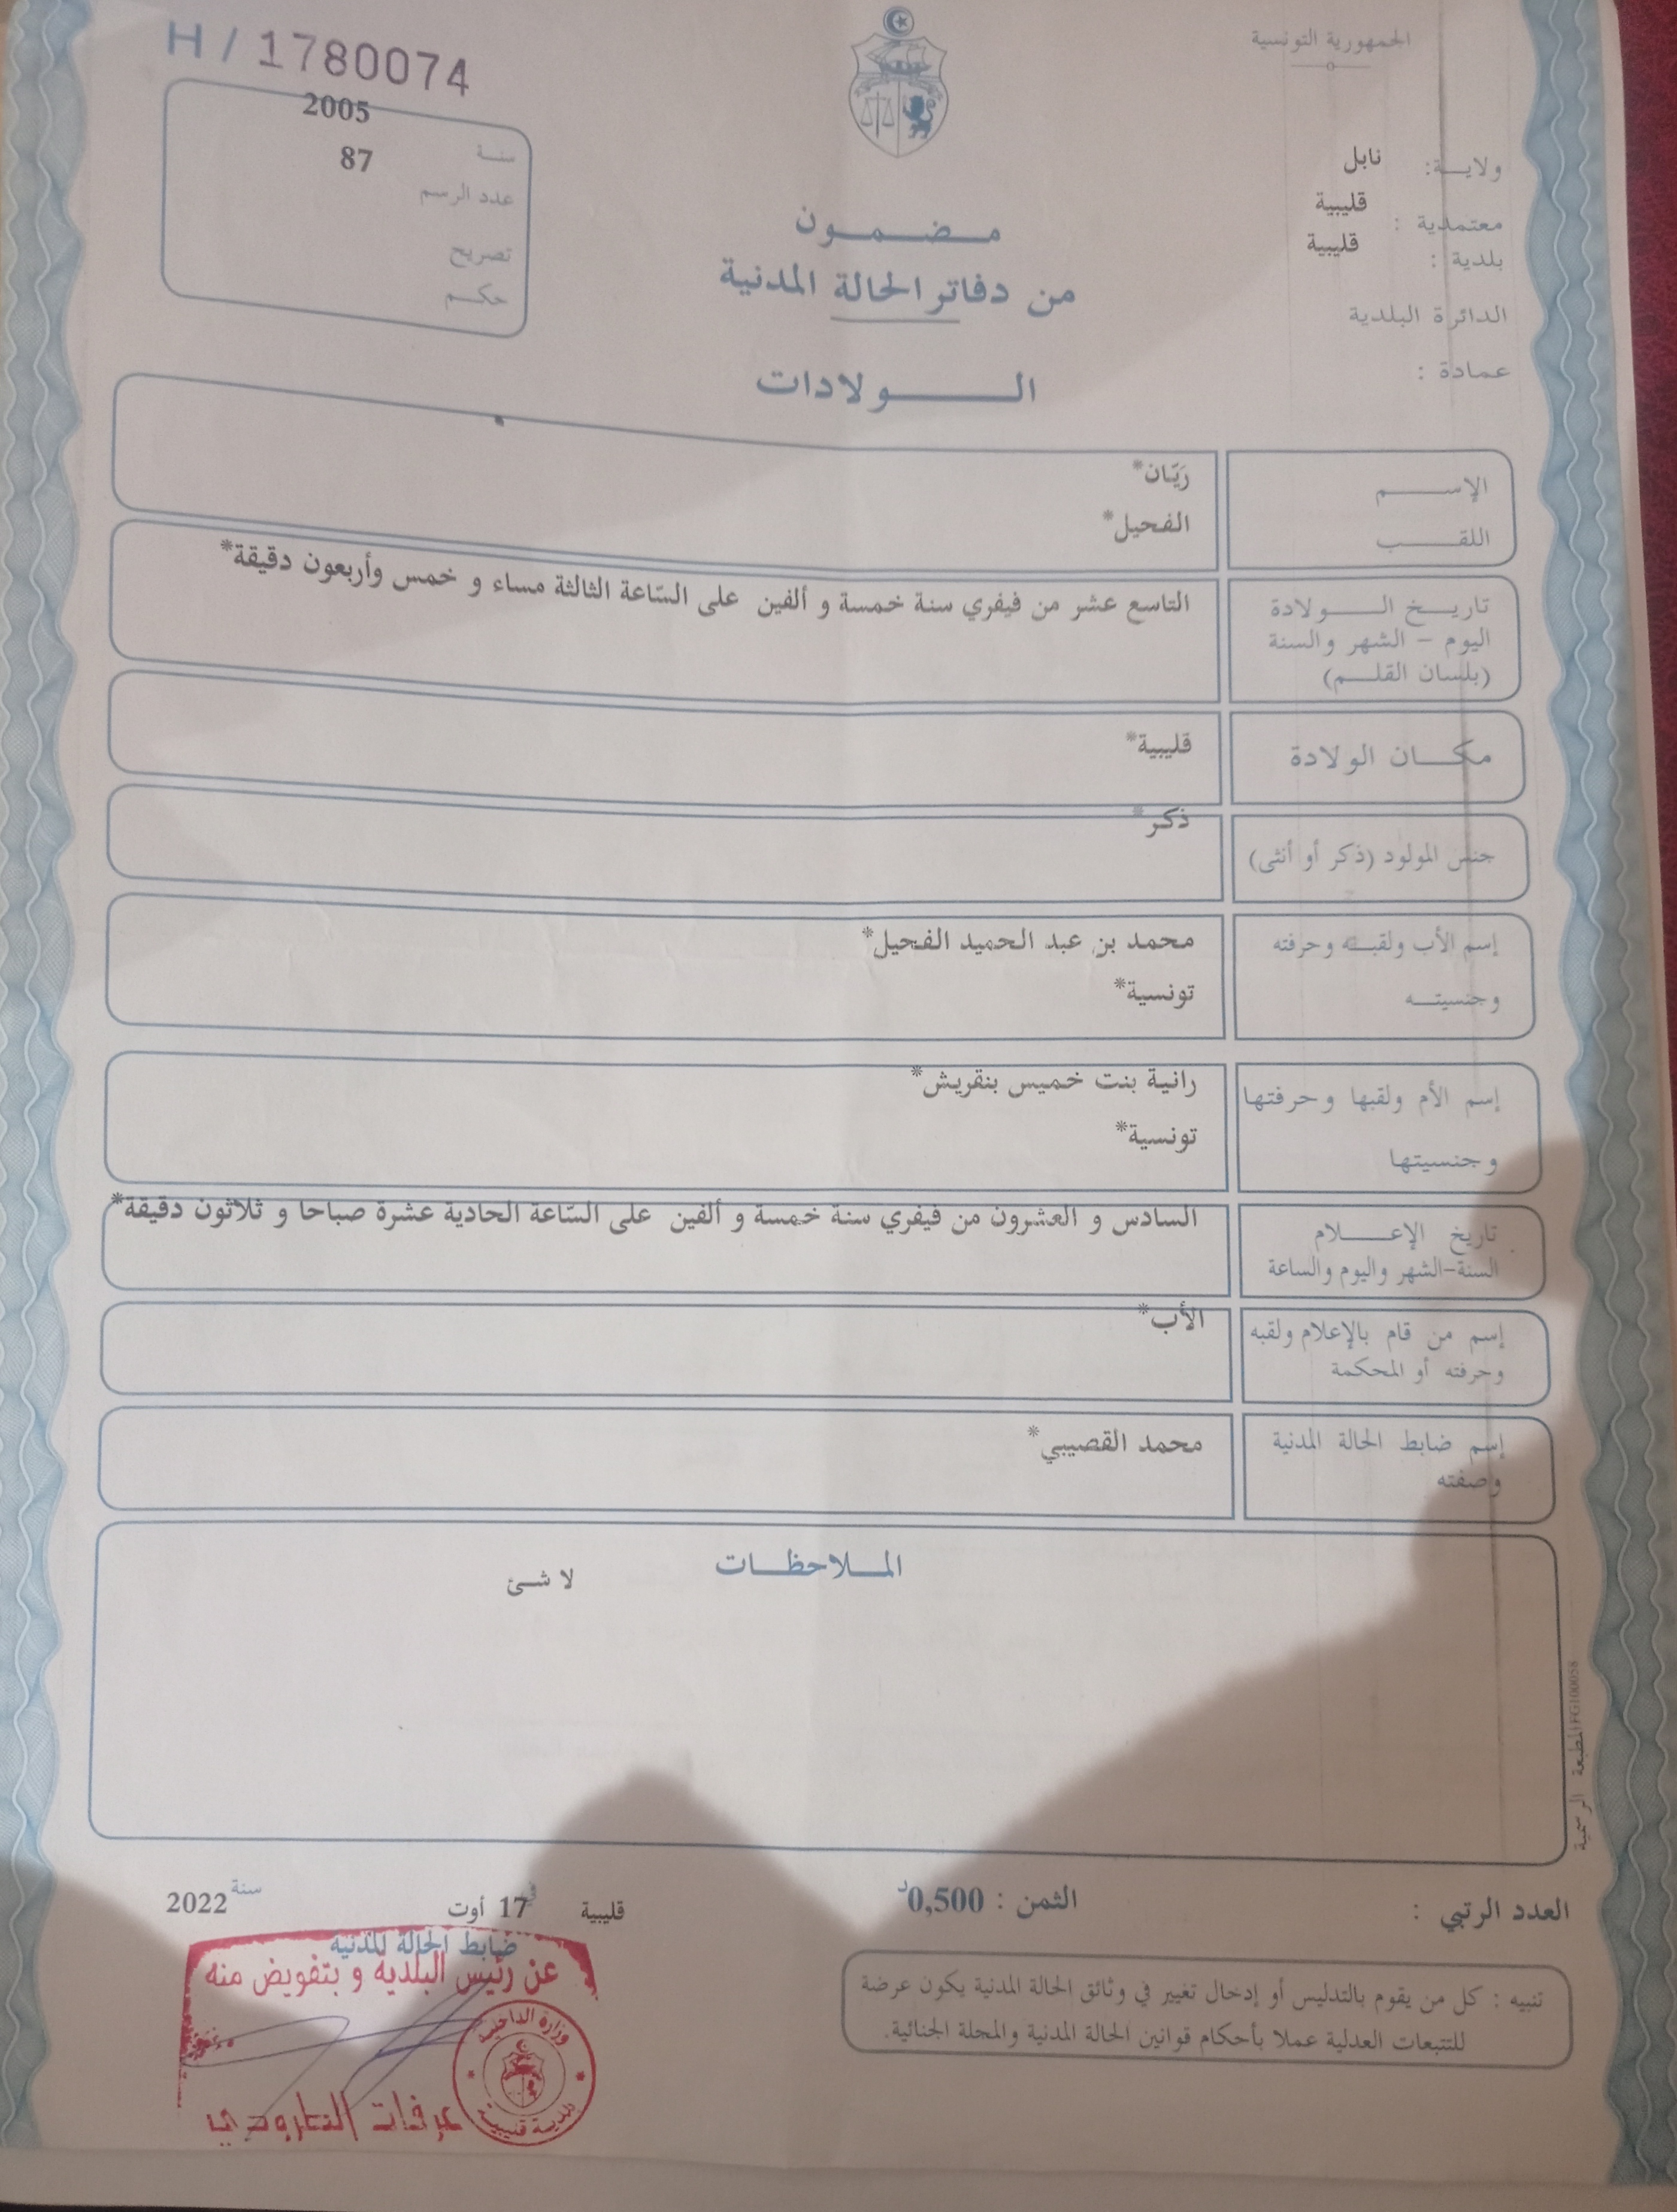 H / 1780074
الجمهورية التونسية
ولايـــة: نابل
معتمدية : قليبية
بلدية : قليبية
الدائرة البلدية
عمادة :
2005
سنـة
87
عدد الرسم
تصريح
حكـم
مـــضـــمـــون
من دفاتر الحالة المدنية
الـــــولادات
الإســـــم
ريّان*
اللقـــــب
الفحيل*
تاريــخ الـــــولادة
اليوم – الشهر والسنة
(بلسان القلـــم)
التاسع عشر من فيفري سنة خمسة و ألفين على السّاعة الثالثة مساء و خمس وأربعون دقيقة*
مكـــان الولادة
قليبية*
جنس المولود (ذكر أو أنثى)
ذكر*
إسم الأب ولقبـه وحرفته
وجنسيتــه
محمد بن عبد الحميد الفحيل*
تونسية*
إسم الأم ولقبها وحرفتها
وجنسيتها
رانية بنت خميس بنقريش*
تونسية*
تاريخ الإعـــــلام
السنة-الشهر واليوم والساعة
السادس و العشرون من فيفري سنة خمسة و ألفين على السّاعة الحادية عشرة صباحا و ثلاثون دقيقة*
إسم من قام بالإعلام ولقبه
وحرفته أو المحكمة
الأب*
إسم ضابط الحالة المدنية
وصفته
محمد القصيبي*
المـــلاحظـــات
لا شئ
المطبعة الرسمية FG100058
العدد الرتبي :
الثمن : 0,500د
قليبية في 17 أوت سنة 2022
ضابط الحالة المدنية
عن رئيس البلدية و بتفويض منه
وزارة الداخلية
بلدية قليبية
عرفات
تنبيه : كل من يقوم بالتدليس أو إدخال تغيير في وثائق الحالة المدنية يكون عرضة
للتتبعات العدلية عملا بأحكام قوانين الحالة المدنية والمجلة الجنائية.